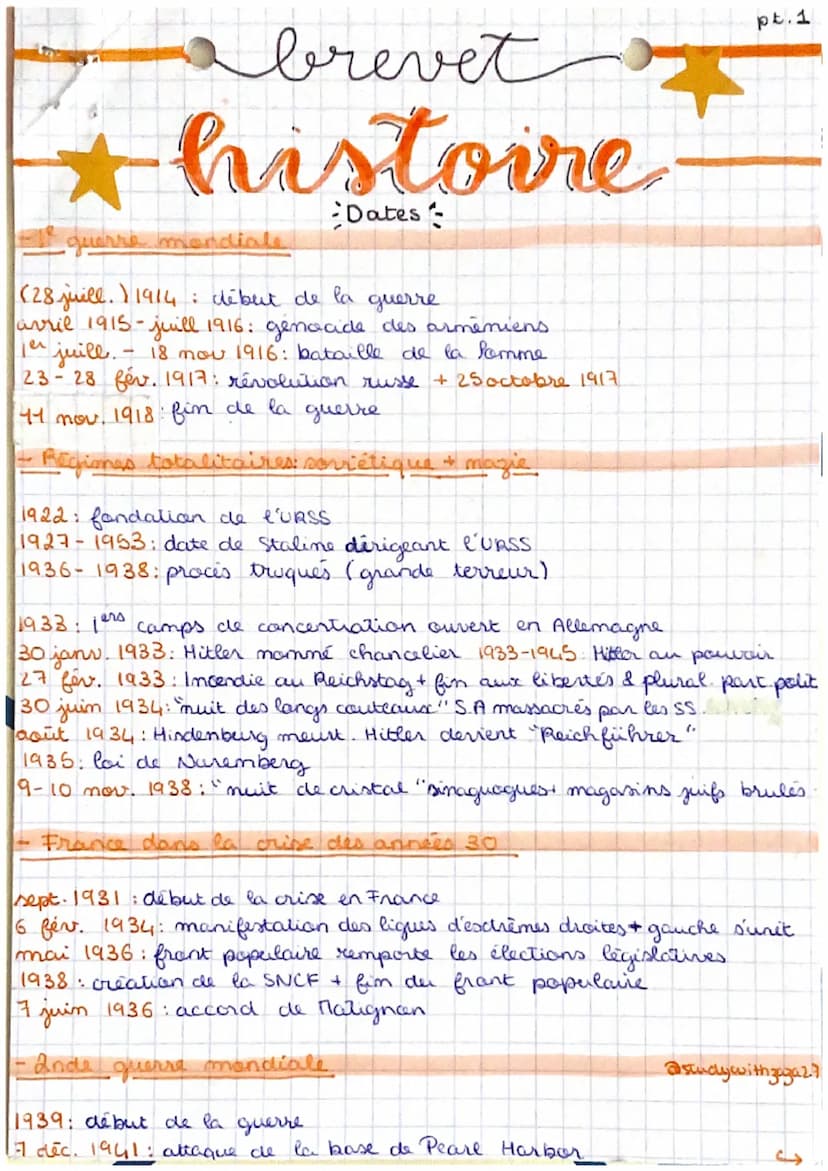 pt. 1
brevet
histoire
Dates
- 1e guerre mondiale
(28 juill.) 1914 : début de la guerre
avril 1915 - juill 1916: génocide des arméniens
1er juill. - 18 nov 1916: bataille de la Somme
23 - 28 fév. 1917: révolution russe + 25 octobre 1917
11 nov. 1918: fin de la guerre
- Régimes totalitaires: soviétique + nazie
1922: fondation de l'URSS
1927 - 1953: date de Staline dirigeant l'URSS
1936 - 1938: procès truqués (grande terreur)
1933: 1ers camps de concentration ouvert en Allemagne
30 janv. 1933: Hitler nommé chancelier 1933-1945: Hitler au pouvoir
27 fév. 1933: Incendie au Reichstag + fin aux libertés & plural. part polit
30 juin 1934: "nuit des longs couteaux" S.A massacrés par les SS.
août 1934: Hindenburg meurt. Hitler devient "Reichführer"
1935: loi de Nuremberg
9-10 nov. 1938: "nuit de cristal" sinaguogues + magasins juifs brulés.
- France dans la crise des années 30
sept. 1931 : début de la crise en France
6 fév. 1934: manifestation des ligues d'esctrèmes droites + gauche s'unit
mai 1936 : front populaire remporte les élections législatives
1938 : création de la SNCF + fin du front populaire
7 juin 1936 : accord de Matignon
- 2nde guerre mondiale
@studywithzaza2.7
1939: début de la guerre
7 déc. 1941: attaque de la base de Pearl Harbor